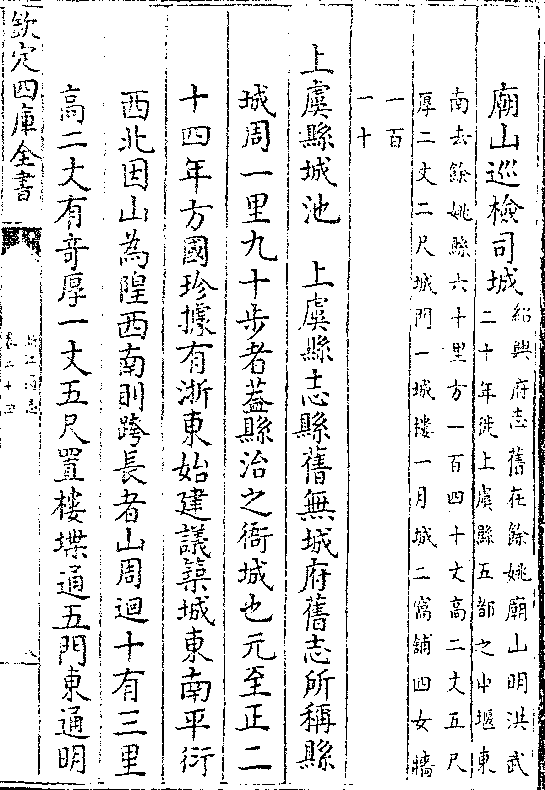 廟山巡檢司城紹興府志舊在餘姚廟山明洪武
二十年徙上虞縣五部之中堰東
南去餘姚縣六十里方一百四十丈高二丈五尺
厚二丈二尺城門一城樓一月城二窩舖四女牆
一百
一十
上虞縣城池　上虞縣志縣舊無城府舊志所稱縣
城周一里九十步者蓋縣治之衙城也元至正二
十四年方國珍據有浙東始建議築城東南平衍
西北因山為隍西南則跨長者山周迴十有三里
高二丈有奇厚一丈五尺置樓堞通五門東通明
欽定四庫全書